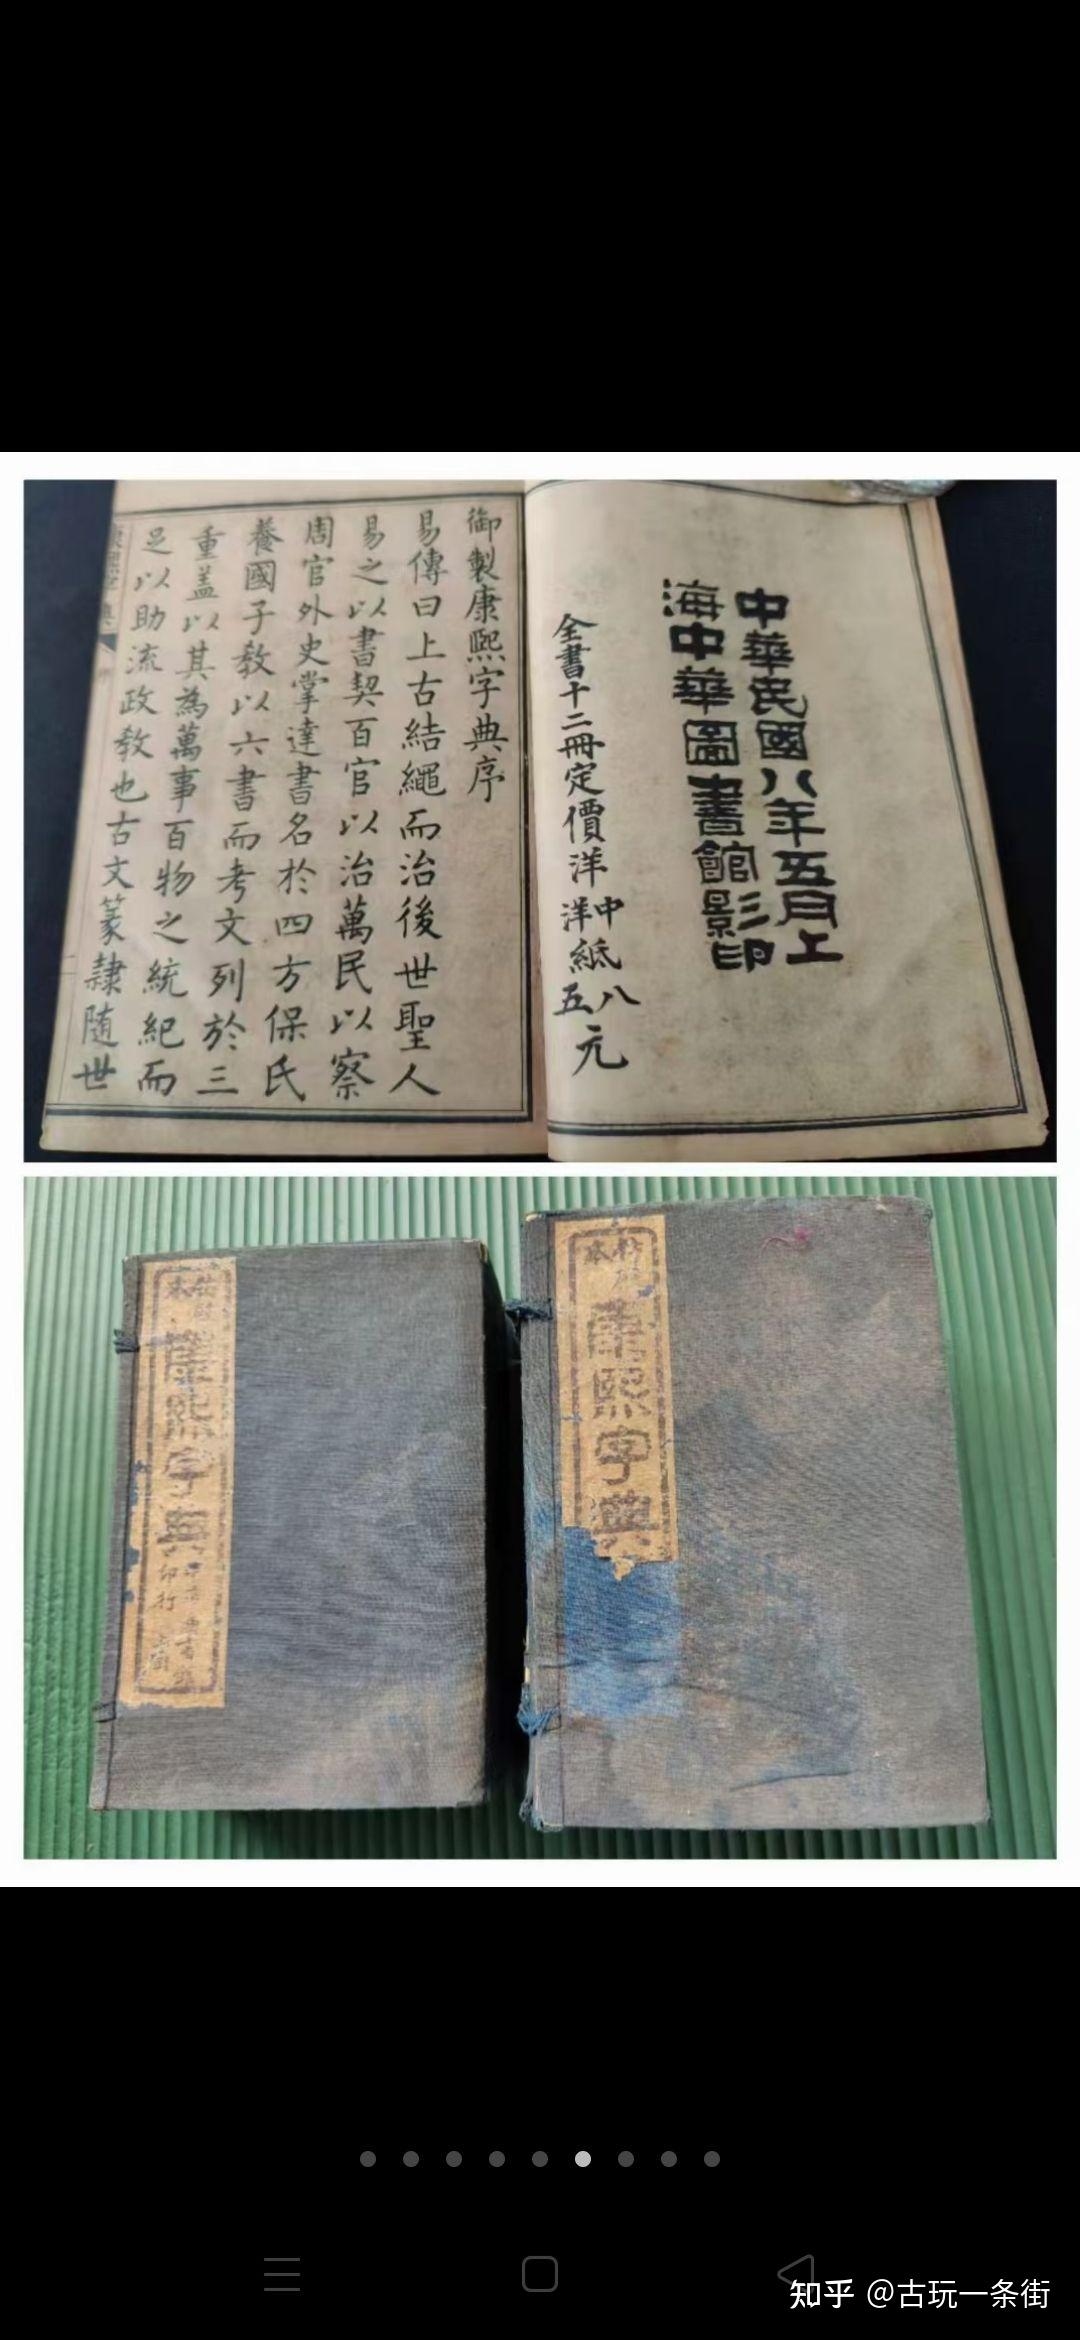 中華民國八年五月上
海中華圖書館影印
全書十二冊定價洋中紙八元
洋五
御製康熙字典序
易傳曰上古結繩而治後世聖人
易之以書契百官以治萬民以察
周官外史掌達書名於四方保氏
養國子教以六書而考文列於三
重蓋以其為萬事百物之統紀而
足以助流政教也古文篆隸随世
康熙字典
康熙字典
印行
知乎 @古玩一条街